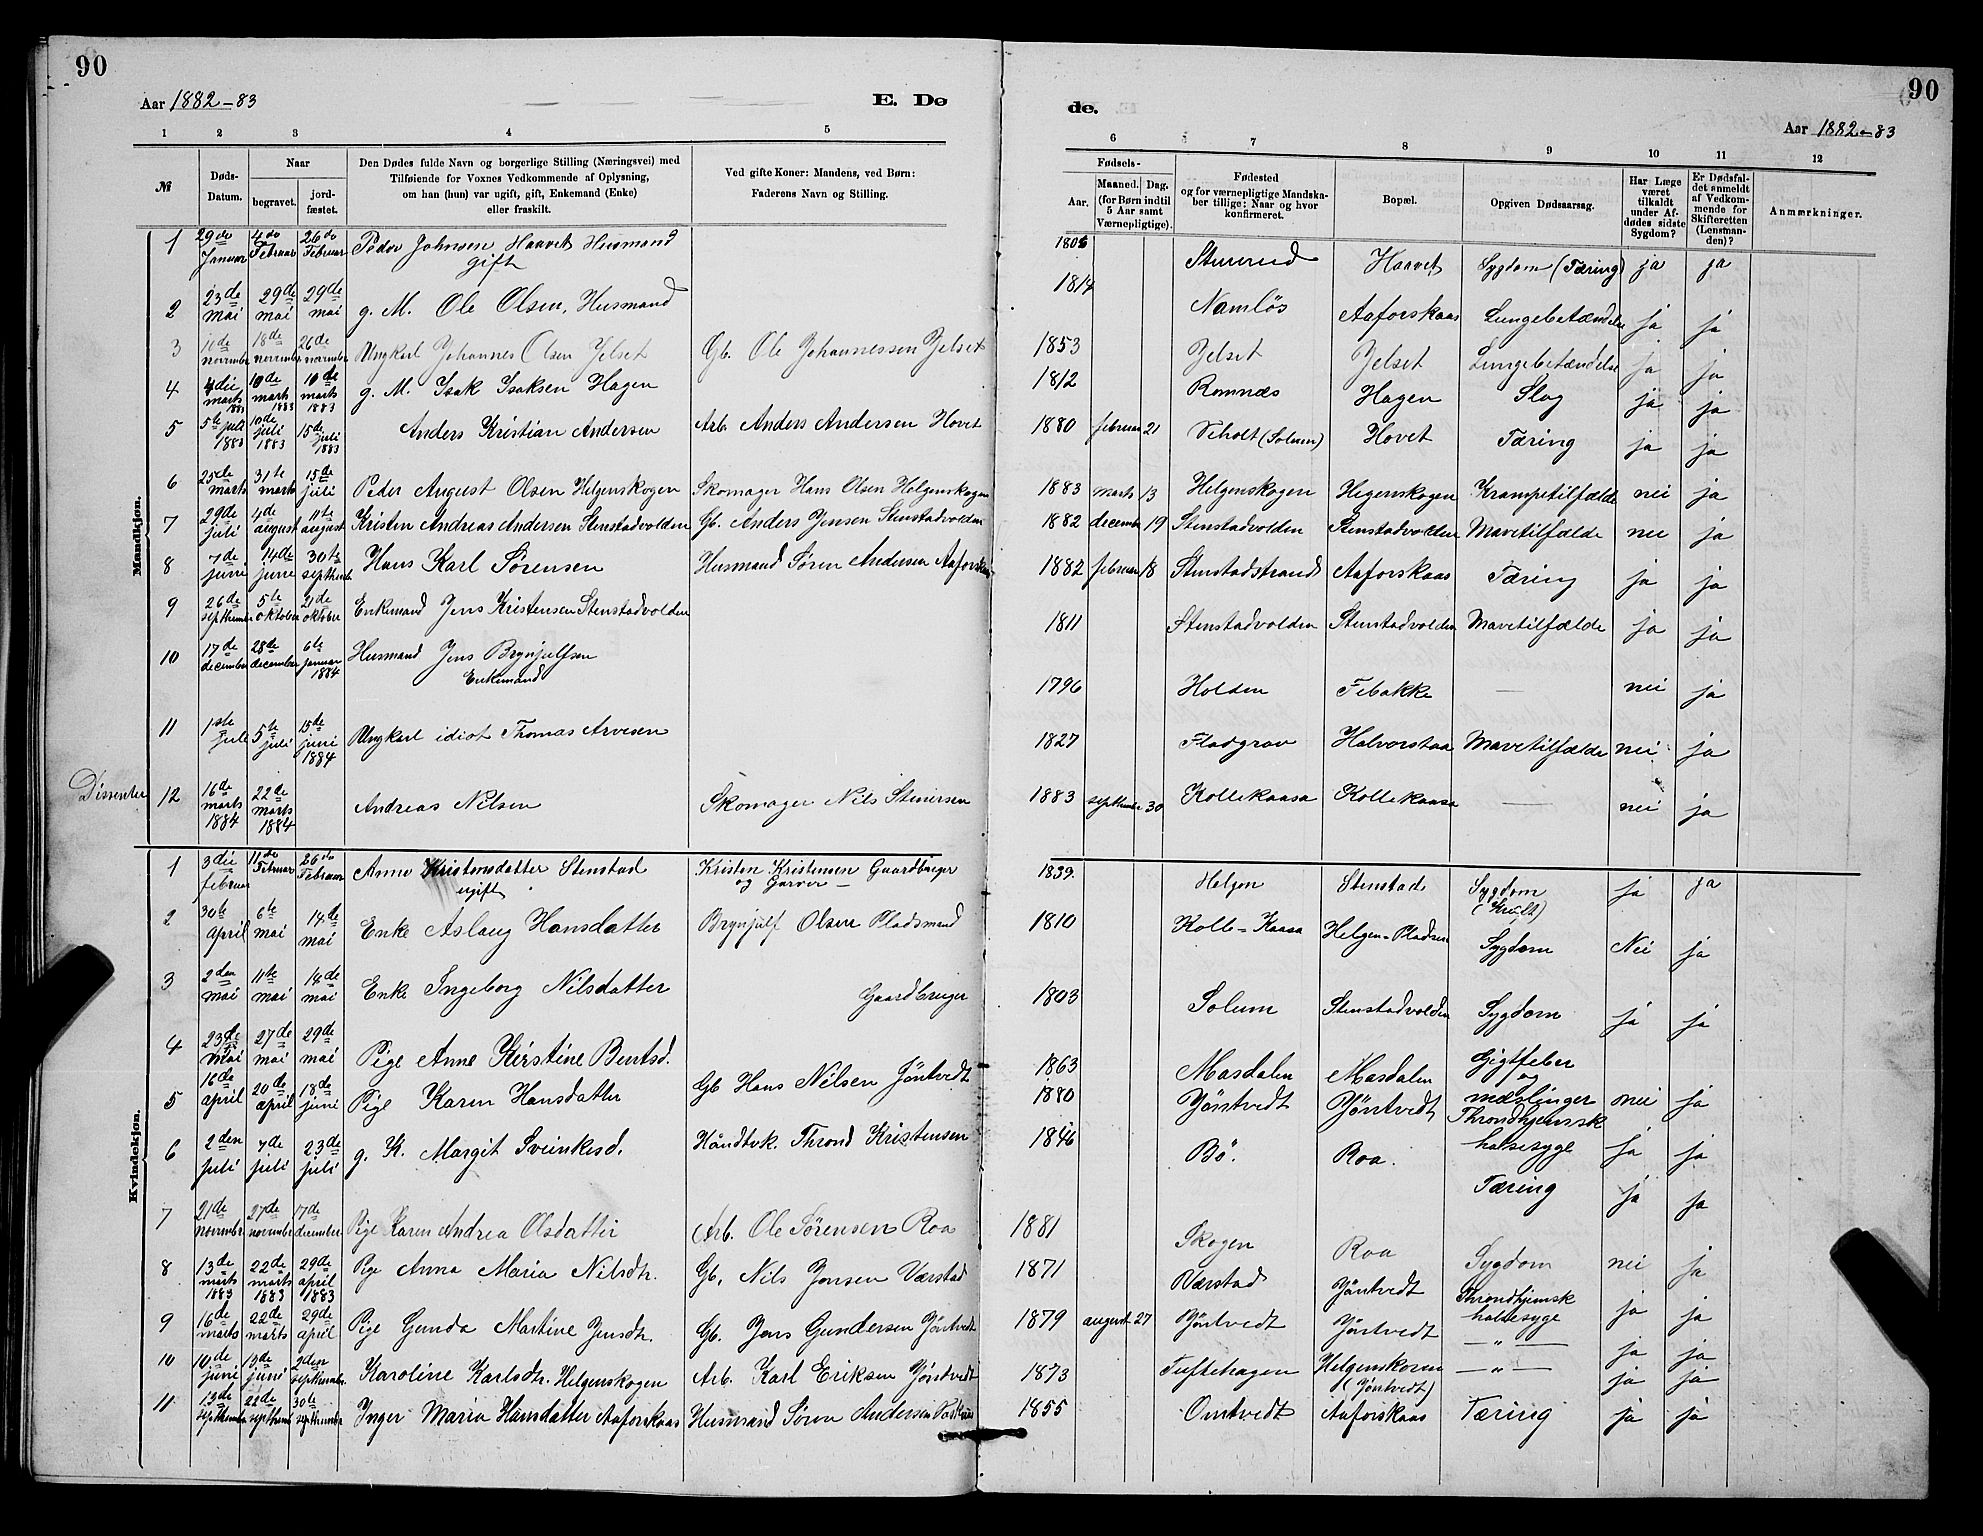 90
90
Aar 1882-83
E. Dø
de.
Aar 1882-83
1 2 3 4 5
6 7 8 9 10 11 12
№
Døds-Datum.
Naar
begravet.
jord-fæstet.
Den Dødes fulde Navn og borgerlige Stilling (Næringsvei) med
Tilføiende for Voxnes Vedkommende af Oplysning,
om han (hun) var ugift, gift, Enkemand (Enke)
eller fraskilt.
Ved gifte Koner: Mandens, ved Børn:
Faderens Navn og Stilling.
Fødsels-
Aar.
Maaned. Dag.
(for Børn indtil
5 Aar samt
Værnepligtige).
Fødested
og for værnepligtige Mandska-
ber tillige: Naar og hvor
konfirmeret.
Bopæl.
Opgiven Dødsaarsag.
Har Læge
været
tilkaldt
under Af-
dødes sidste
Sygdom?
Er Dødsfal-
det anmeldt
af Vedkom-
mende for
Skifteretten
(Lensman-
den)?
Anmærkninger.
Mandkjøn.
1 29do Januar 4do Februar 26do Februar Peder Johnsen Haavet Husmand gift 1806 Haavet Sygdom (Tæring) ja ja
2 23de mai 29de mai 29de mai g. M. Ole Olsen, Husmand 1814 Namløs Aaforskaas Lungebetændelse ja ja
3 11de november 18de november 26de november Ungkarl Johannes Olsen Jelset Gb. Ole Johannessen Jelset 1853 Jelset Jelset Lungebetændelse ja ja
4 4die marts 1883 10de marts 1883 10de marts 1883 g. M. Isak Isaksen Hagen 1812 Romnæs Hagen Slag ja ja
5 5te juli 1883 10de juli 1883 15de juli 1883 Anders Kristian Andersen Arb. Anders Andersen Hovet 1880 februar 21 Viholt (Solum) Hovet Tæring ja ja
6 25de marts 31te marts 15de juli Peder August Olsen Helgenskogen Skomager Hans Olsen Helgenskogen 1883 marts 13 Helgenskogen Hegenskogen Krampetilfælde nei ja
7 29de juli 4de august 11te august Kristen Andreas Andersen Stenstadvolden Gb. Anders Jensen Stenstadvolden 1882 december 19 Stenstadvolden Stenstadvolden Mavetilfælde nei ja
8 7de juni 14de juni 30te september Hans Karl Sørensen Husmand Søren Andersen Aaforskaas 1882 februar 18 Stenstadstrand Aaforskaas Tæring ja ja
9 26de september 5te oktober 21de oktober Enkemand Jens Kristensen Stenstadvolden 1811 Stenstadvolden Stenstadvolden Mavetilfælde ja ja
10 17de december 28de december 6te januar 1884 Husmand Jens Brynjulfsen Enkemand 1796 Holden Febakke — nei ja
11 1ste juli 5te juli 15de juni 1884 Ungkarl idiot Thomas Arvesen 1827 Fladgrav Halvorstaa Mavetilfælde nei ja
Dissenter 12 16de marts 1884 22de marts 1884 Andreas Nilsen Skomager Nils Stenersen 1883 september 30 Kollekaasa Kollekaasa — nei ja
Kvindekjøn.
1 3die februar 11te Februar 26do Februar Anne Kristensdatter Stenstad ugift Kristen Kristensen Gaardbruger og Garver — 1839. Helgen Stenstad Sygdom ja ja
2 30te April 6te mai 14de mai Enke Aslaug Hansdatter Brynjulf Olsen Pladsmand 1810 Kolle-Kaasa Helgen-Pladsen Sygdom Nei ja
3 2den mai 11te mai 14de mai Enke Ingeborg Nilsdatter Gaardbruger 1803 Solum Stenstadvolden Sygdom ja ja
4 23de mai 27de mai 29de mai Pige Anne Kirstine Bentsd. 1863 Masdalen Masdalen Gigtfeber og mæslinger nei ja
5 16de april 20de april 18de juni Pige Karen Hansdatter Gb Hans Nilsen Jøntvedt 1880 Jøntvedt Jøntvedt Throndhjemsk halsesyge ja ja
6 2den juli 7de juli 23de juli g. K. Margit Sveinkesd. Håndtvk. Thrond Kristensen 1846 Bø. Roa. Tæring ja ja
7 21de november 27de november 17de december Pige Karen Andrea Olsdatter Arb. Ole Sørensen Roa 1881 Skogen Roa Sygdom nei ja
8 13de marts 1883 22de marts 1883 29de april 1883 Pige Anna Maria Nilsdtr. Gb. Nils Jensen Værstad 1871 Værstad Jøntvedt Throndhjemsk halsesyge ja ja
9 16de marts 22de marts 29de april Pige Gunda Martine Jensdtr. Gb. Jens Gundersen Jøntvedt 1879 august 27 Jøntvedt Jøntvedt — " — ja ja
10 10de juni 19de juni 2den september Karoline Karlsdtr. Helgenskogen Arb. Karl Eriksen Jøntvedt 1873 Tuftehagen Helgenskoven (Jøntvedt) — " — ja ja
11 13de september 22de september 30te september Inger Maria Hansdatter Aaforskaas Husmand Søren Andersen 1855 Omtvedt Aaforskaas Tæring ja ja